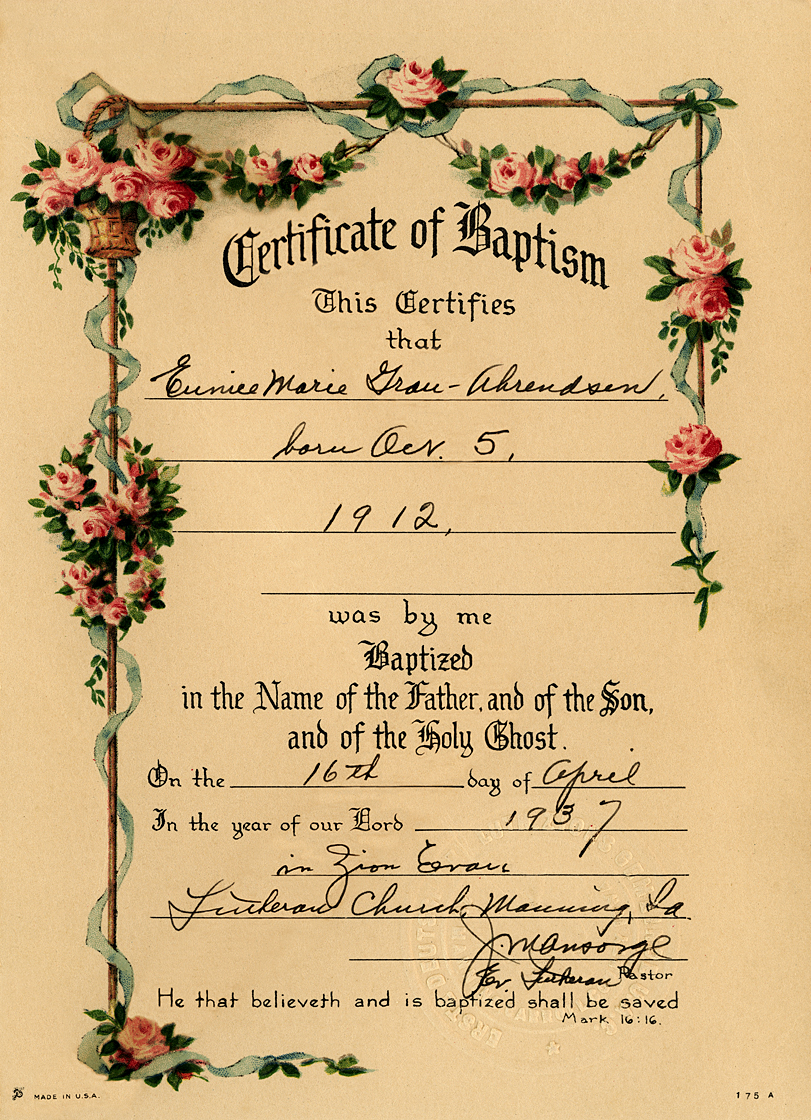 Certificate of Baptism
This Certifies
that
Eunice Marie Grau-Ahrendsen,
born Oct. 5,
1912,
was by me
Baptized
in the Name of the Father, and of the Son,
and of the Holy Ghost.
On the 16th day of April
In the year of our Lord 1937
in Zion Evan
Lutheran Church, Manning, Ia.
J. M. Ansorge
Ev. Lutheran Pastor
He that believeth and is baptized shall be saved
Mark 16:16.
MADE IN U.S.A.
175 A